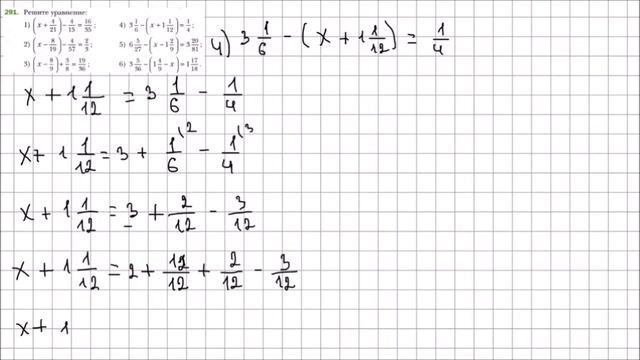 291. Решите уравнение:
1) (x + 4/21) − 4/15 = 16/35;
2) (x − 8/19) − 4/57 = 2/3;
3) (x − 8/9) + 5/8 = 19/36;
4) 3 1/6 − (x + 1 1/12) = 1/4;
5) 6 5/27 − (x − 1 2/9) = 3 20/81;
6) 3 5/36 − (1 4/9 − x) = 1 17/18;
4) 3 1/6 − (x + 1 1/12) = 1/4
x + 1 1/12 = 3 1/6 − 1/4
x + 1 1/12 = 3 + 1/6 (2 − 1/4 (3
x + 1 1/12 = 3 + 2/12 − 3/12
x + 1 1/12 = 2 + 12/12 + 2/12 − 3/12
x + 1